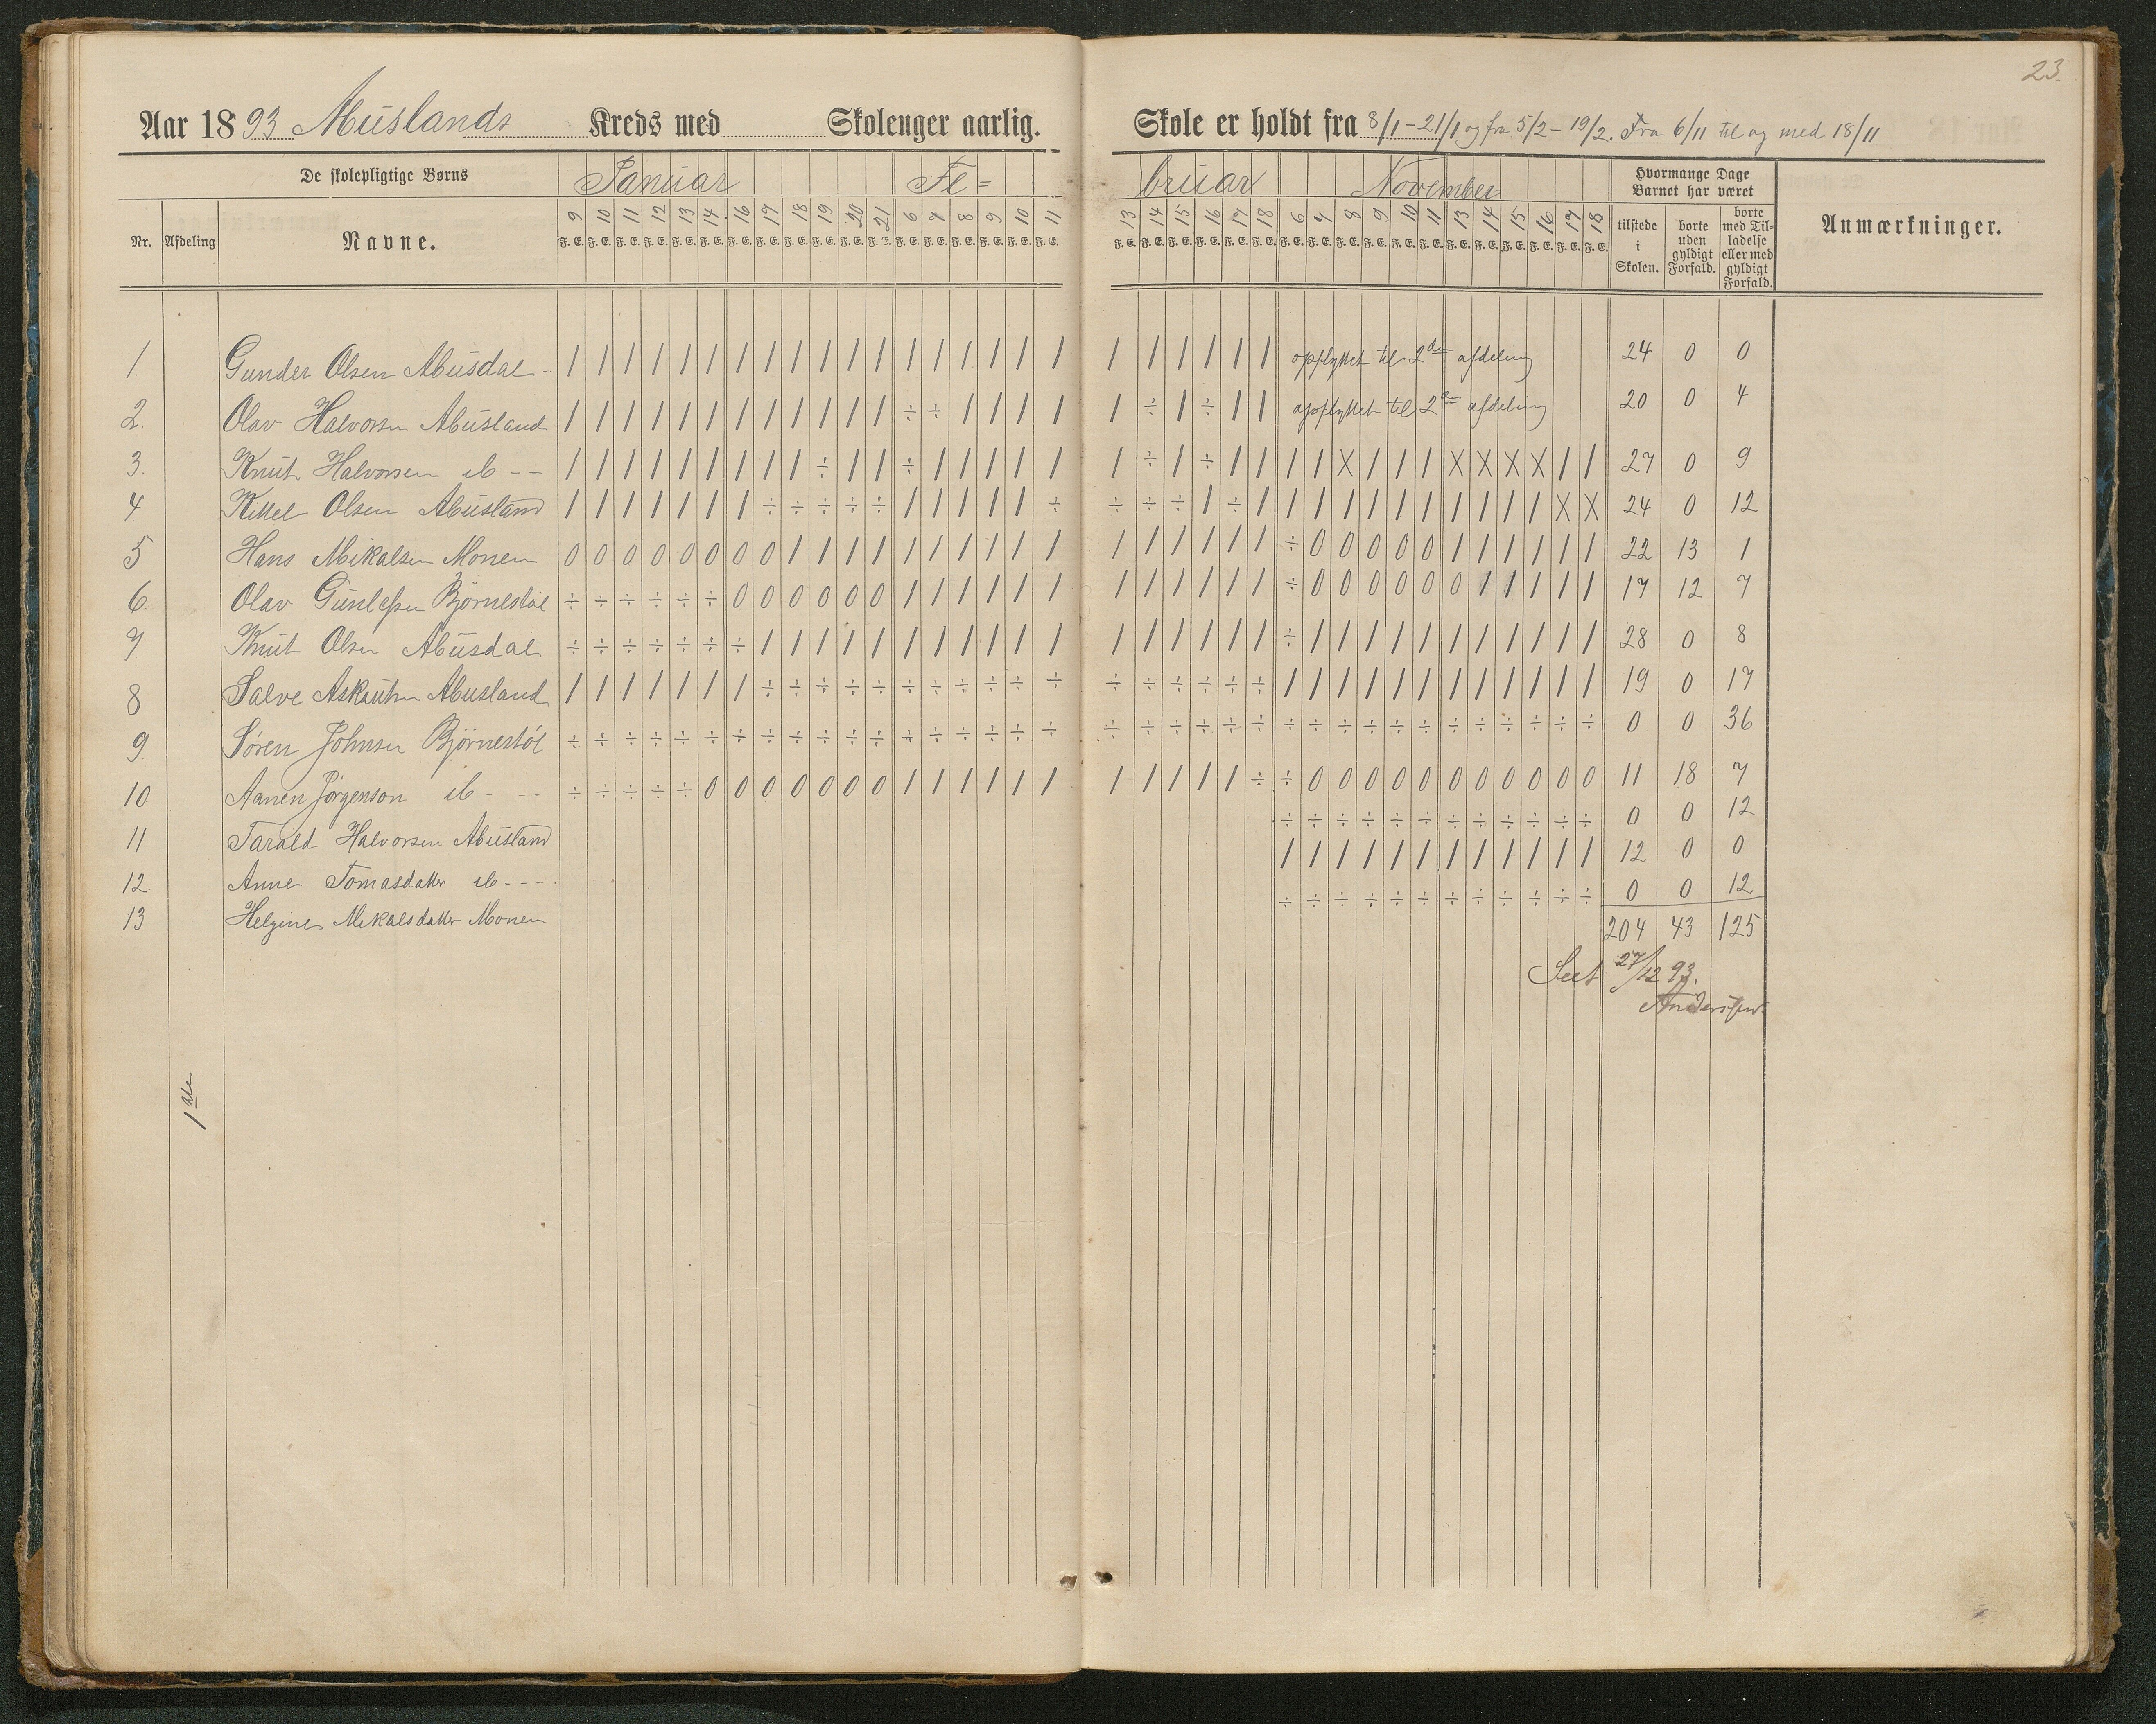 23.
Aar 1893 Abuslands Kreds med Skolenger aarlig. Skole er holdt fra 8/1 - 21/1 og fra 5/2 - 19/2. Fra 6/11 til og med 18/11
De skolepligtige Børns Januar Fe= bruar November Hvormange Dage Barnet har været
Nr. Afdeling Navne. 9 10 11 12 13 14 16 17 18 19 20 21 6 7 8 9 10 11 13 14 15 16 17 18 6 7 8 9 10 11 13 14 15 16 17 18 tilstede i Skolen. borte uden gyldigt Forfald. borte med Tilladelse eller med gyldigt Forfald. Anmærkninger.
F. E. F. E. F. E. F. E. F. E. F. E. F. E. F. E. F. E. F. E. F. E. F. E. F. E. F. E. F. E. F. E. F. E. F. E. F. E. F. E. F. E. F. E. F. E. F. E. F. E. F. E. F. E. F. E. F. E. F. E. F. E. F. E. F. E. F. E. F. E. F. E.
1. Gunder Olsen Abusdal - / / / / / / / / / / / / / / / / / / / / / / / / opflyttet til 2den afdeling 24 0 0
2. Olav Halvorsen Abusland / / / / / / / / / / / / ÷ ÷ / / / / / ÷ / ÷ / / opflyttet til 2den afdeling 20 0 4
3. Knut Halvorsen ib - - / / / / / / / / / ÷ / / ÷ / / / / / / ÷ / ÷ / / / / X / / / X X X X / / 27 0 9
4. Kittel Olsen Abusland / / / / / / / ÷ ÷ ÷ ÷ ÷ / / / / / ÷ ÷ ÷ ÷ / ÷ / / / / / / / / / / / X X 24 0 12
5 Hans Mikalsen Monen 0 0 0 0 0 0 0 0 / / / / / / / / / / / / / / / / ÷ 0 0 0 0 0 / / / / / / 22 13 1
6. Olav Gunlefsen Bjørnestøl ÷ ÷ ÷ ÷ ÷ ÷ 0 0 0 0 0 0 / / / / / / / / / / / / ÷ 0 0 0 0 0 0 / / / / / 17 12 7
7. Knut Olsen Abusdal ÷ ÷ ÷ ÷ ÷ ÷ ÷ / / / / / / / / / / / / / / / / / ÷ / / / / / / / / / / / 28 0 8
8 Salve Aslaksen Abusland / / / / / / / ÷ ÷ ÷ ÷ ÷ ÷ ÷ ÷ ÷ ÷ ÷ ÷ ÷ ÷ ÷ ÷ ÷ / / / / / / / / / / / / 19 0 17
9 Søren Johnsen Bjørnestøl ÷ ÷ ÷ ÷ ÷ ÷ ÷ ÷ ÷ ÷ ÷ ÷ ÷ ÷ ÷ ÷ ÷ ÷ ÷ ÷ ÷ ÷ ÷ ÷ ÷ ÷ ÷ ÷ ÷ ÷ ÷ ÷ ÷ ÷ ÷ ÷ 0 0 36
10 Aanen Jørgenson ib - - - ÷ ÷ ÷ ÷ ÷ 0 0 0 0 0 0 0 / / / / / / / / / / / ÷ ÷ 0 0 0 0 0 0 0 0 0 0 0 11 18 7
11 Tarald Halvorsen Abusland ÷ ÷ ÷ ÷ ÷ ÷ ÷ ÷ ÷ ÷ ÷ ÷ 0 0 12
12. Anne Tomasdatter ib - - - / / / / / / / / / / / / 12 0 0
13 Helgine Mikalsdatter Monen ÷ ÷ ÷ ÷ ÷ ÷ ÷ ÷ ÷ ÷ ÷ ÷ 0 0 12
204 43 125
Seet 27/12 93.
Anderssen
1ste